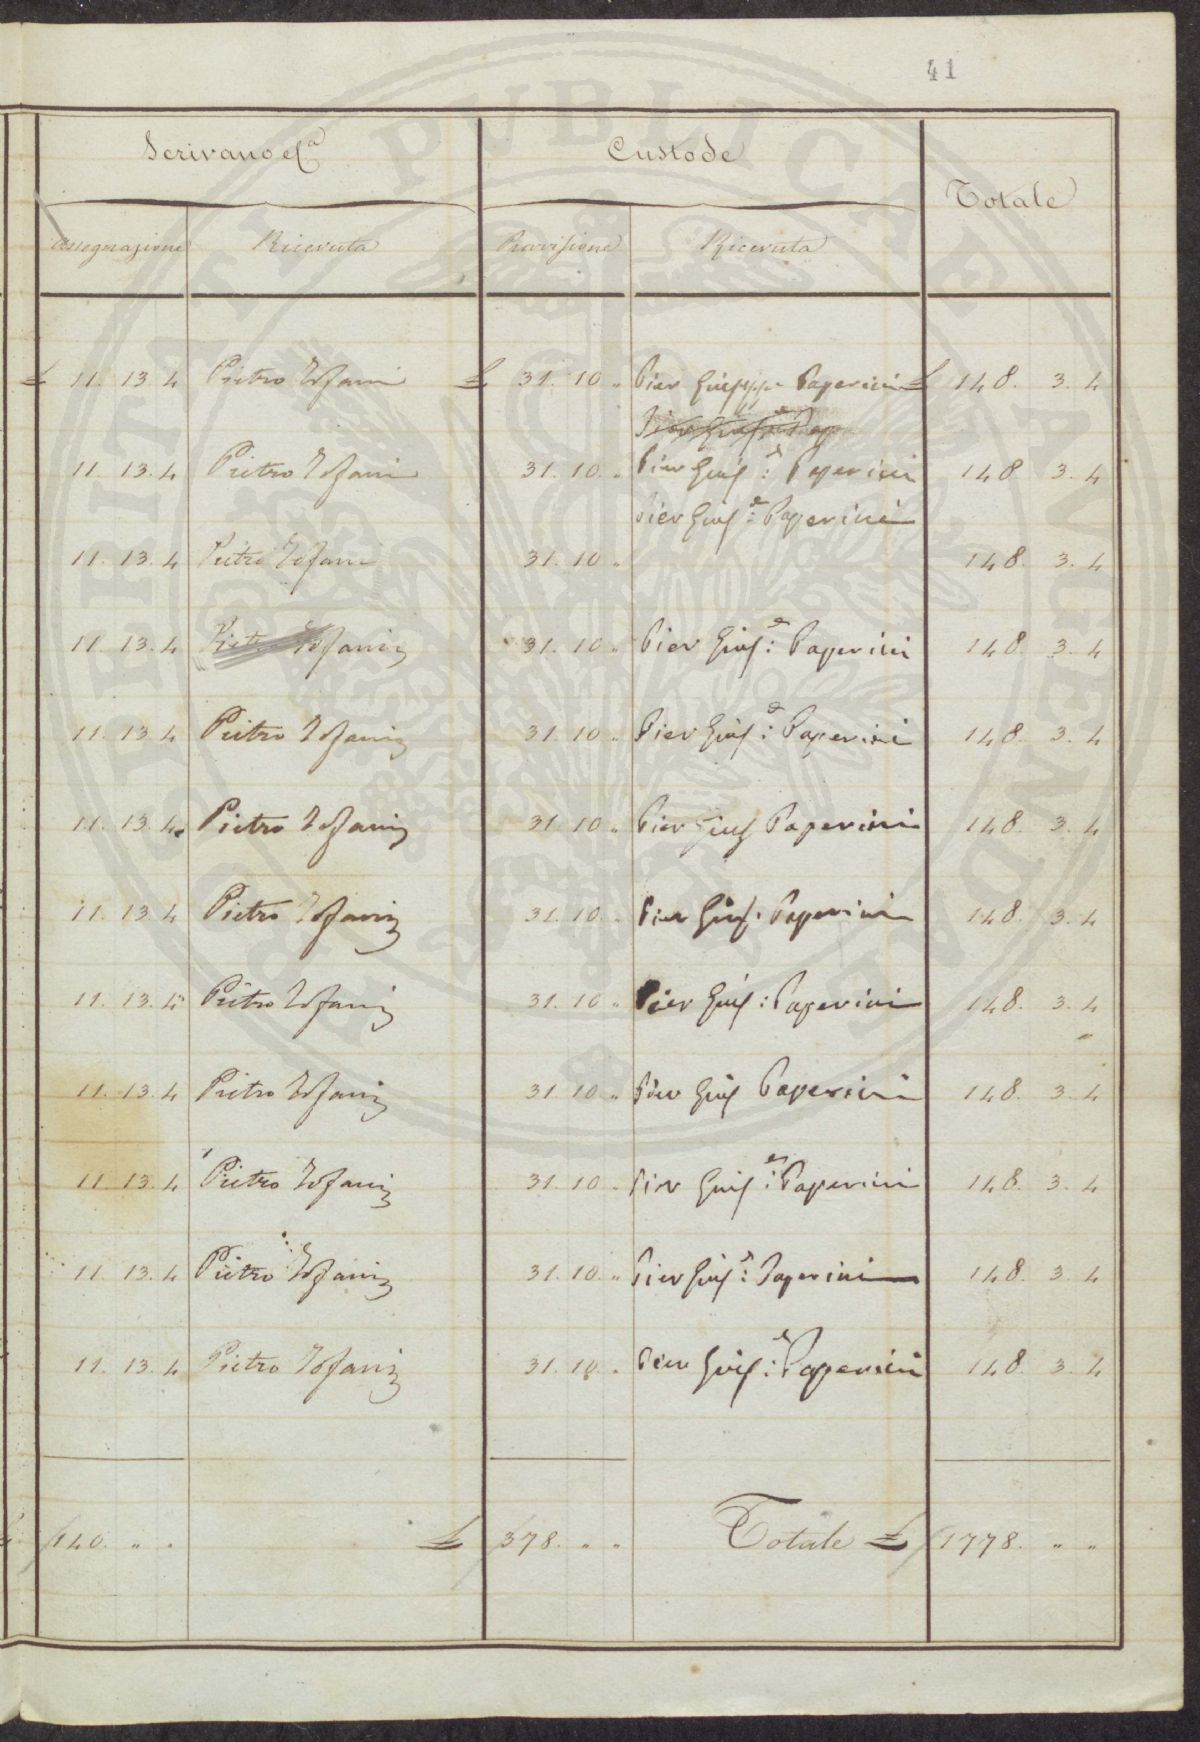 41
Scrivano
Custode
Totale
Assegnazione
Ricevuta
Provisione
Ricevuta
£ 11. 13. 4 Pietro Tofani £ 31. 10 „ Pier Giuseppe Paperini £ 148. 3. 4
11. 13. 4 Pietro Tofani 31. 10. „ Pier Gius:e Paperini 148 3. 4
Pier Gius:e Paperini
11. 13. 4 Pietro Tofani 31. 10 „ 148. 3. 4
11. 13. 4 Pietro Tofani 31. 10 „ Pier Gius:e Paperini 148. 3. 4
11. 13. 4 Pietro Tofani 31. 10 „ Pier Gius:e Paperini 148. 3. 4
11. 13. 4. Pietro Tofani 31. 10 „ Pier Gius Paperini 148. 3. 4
11. 13. 4 Pietro Tofani 31. 10. „ Pier Gius. Paperini 148. 3. 4
11. 13. 4 Pietro Tofani 31. 10 „ Pier Gius: Paperini 148. 3. 4
11. 13. 4 Pietro Tofani 31. 10. „ Pier Gius Paperini 148. 3. 4
11. 13. 4 Pietro Tofani 31. 10. „ Pier Gius:e Paperini 148. 3. 4
11. 13. 4 Pietro Tofani 31. 10. „ Pier Gius:e Paperini 148. 3 4
11. 13. 4 Pietro Tofani 31. 10 „ Pier Gius:e Paperini 148. 3. 4
140. „ „ £ 378. „ „ Totale £ 1778. „ „